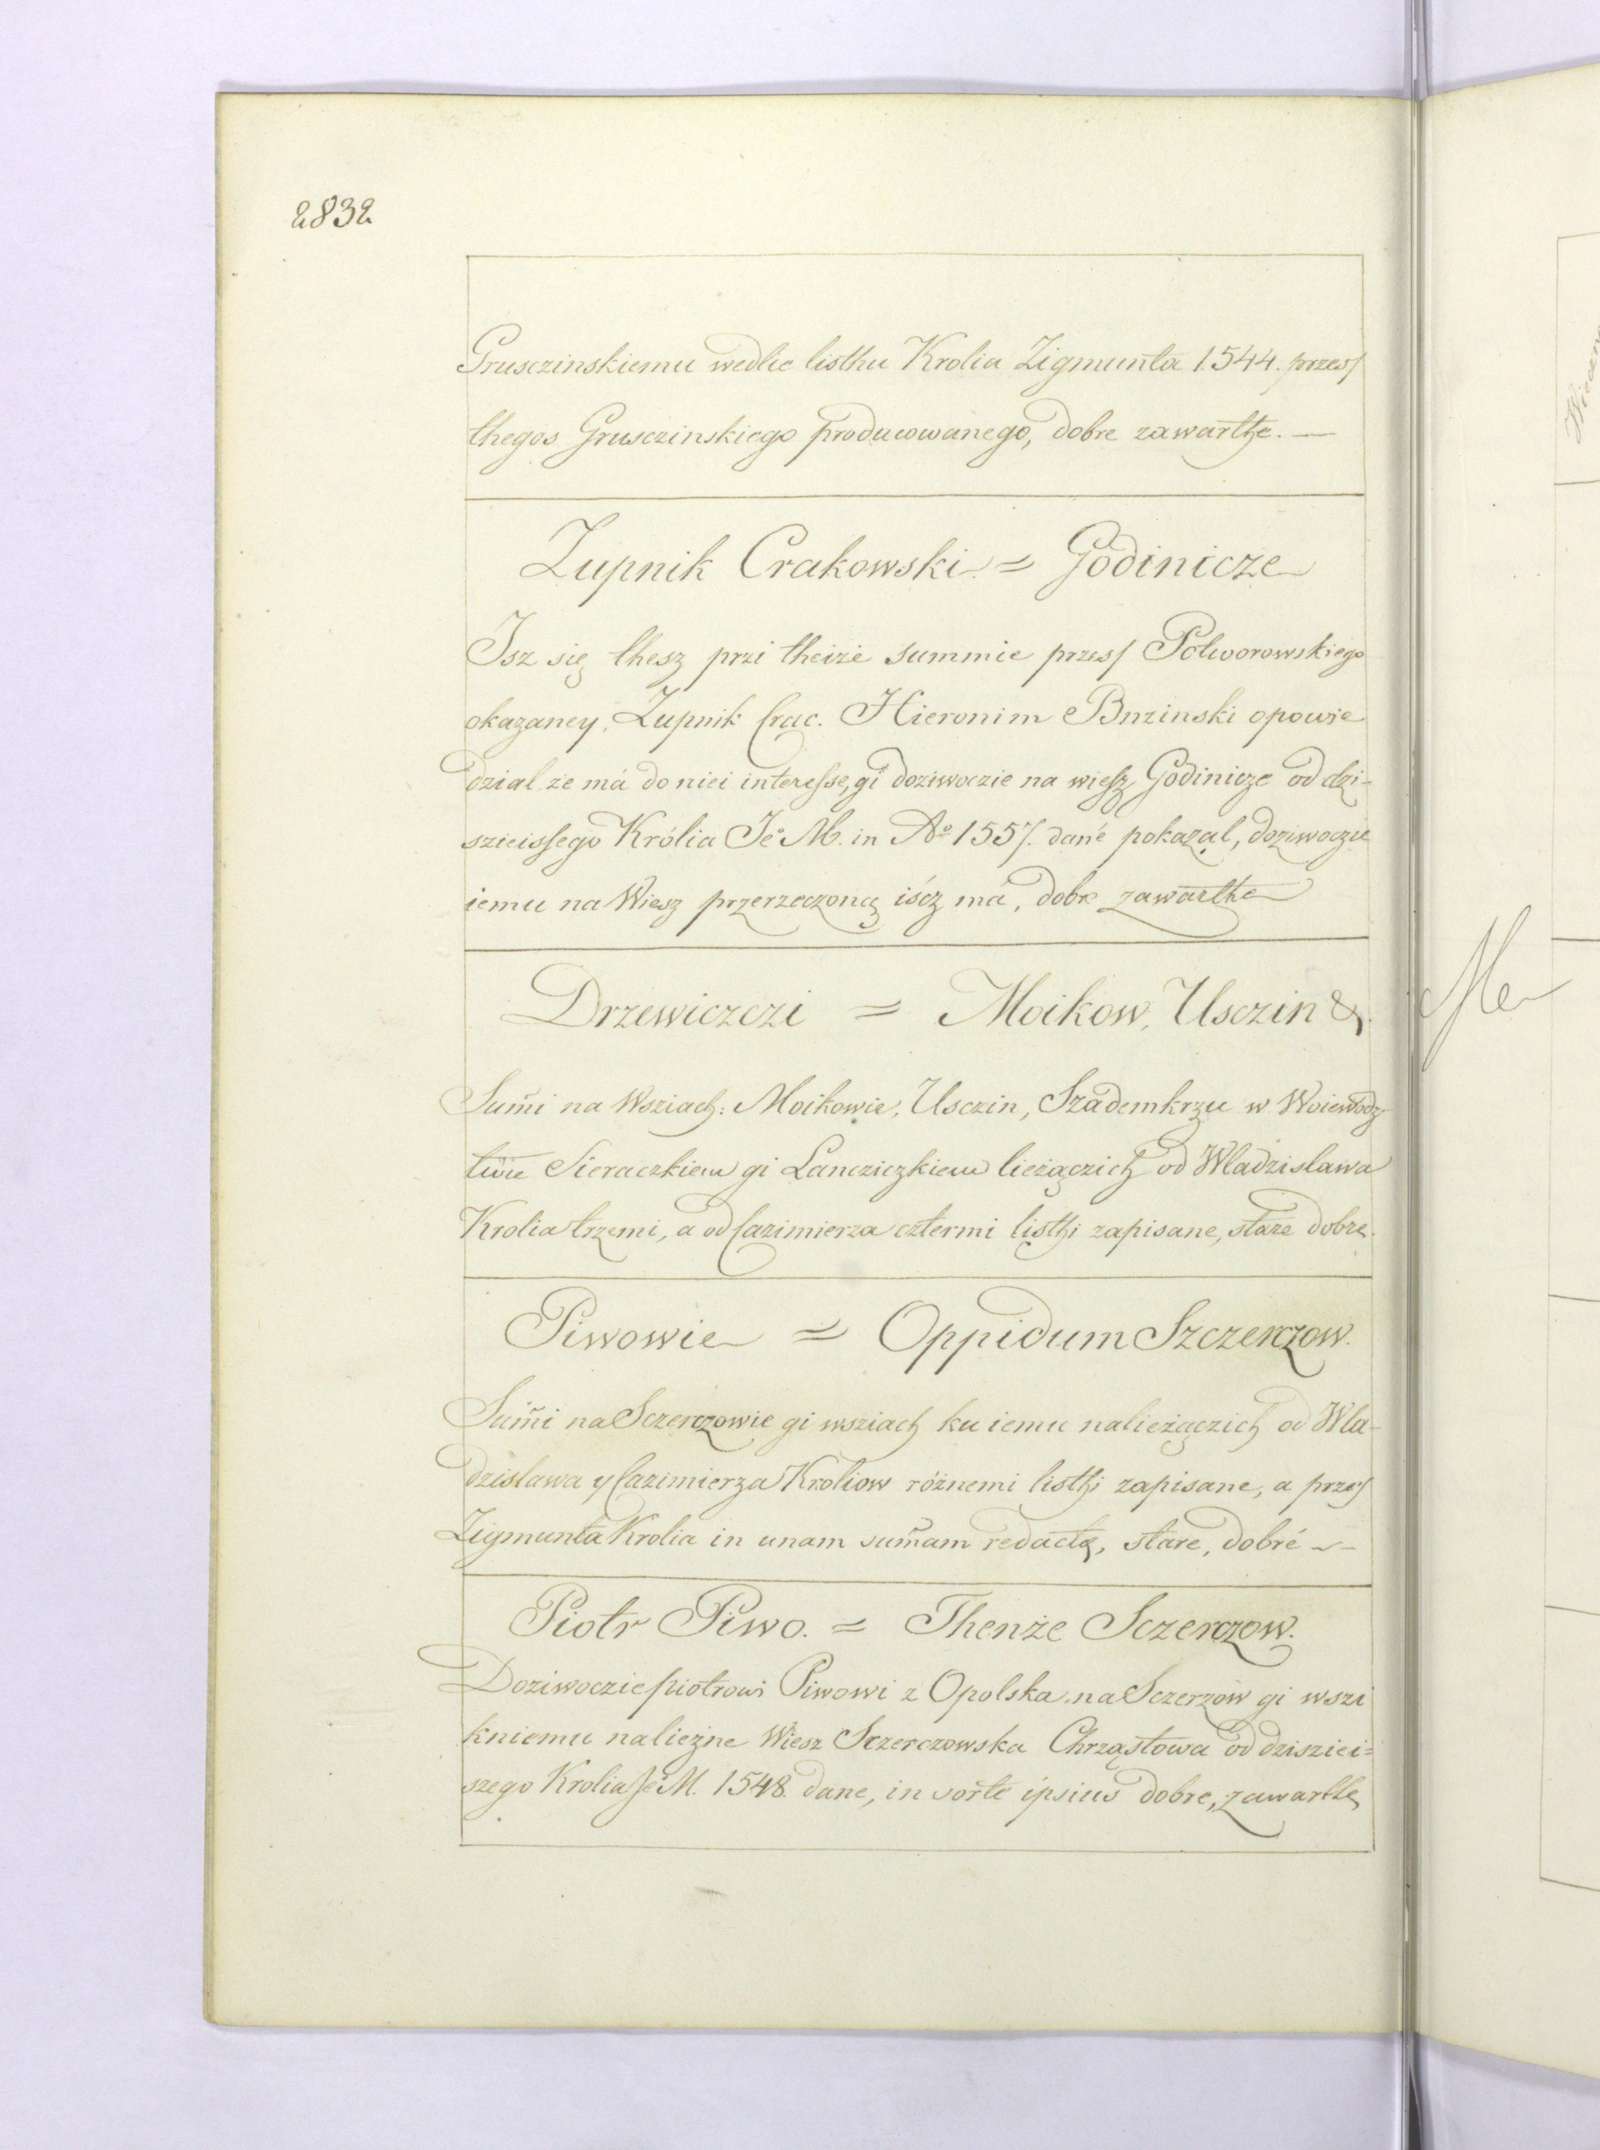 2832
Grusczinskiemu wedlie listhu Krolia Zigmunta 1544. przess
thegos Grusczinskiego producowanego, dobre zawarthe. —
Zupnik Crakowski = Godinicze
Isz się thesz przi theize summie przess Potworowskiego
okazaney, Zupnik Crac. Hieronim Bnzinski opowie
dzial ze má do niei interesse, gi doziwoczie na wiesz Godinicze od dzi-
szieissego Królia Je° M. in A° 1557. dané pokazal, doziwoczie
iemu na Wiesz przerzeczoną iścz má, dobre zawarthe
Drzewiczczi = Moikow, Usczin &.
Sum̃i na Wsziach: Moikowie, Usczin, Szademkrzu w Woiewodz
twie Sieraczkiem gi Lancziczkiem lieżączich od Wladzislawa
Krolia trzemi, a od Cazimierza cztermi listhi zapisane, stare dobre.
Piwowie = Oppidum Szczerczow.
Sum̃i na Sczerczowie gi wsziach ku iemu nalieżączich od Wla-
dzislawa y Cazimierza Kroliow różnemi listhi zapisane, a przess
Zigmunta Krolia in unam sum̃am redacta, stare, dobré
Piotr Piwo. = Thenże Sczerczow.
Doziwoczie piotrowi Piwowi z Opolska na Sczerzow gi wszi
kniemu nalieżne Wiesz Sczerczowska Chrząstowa od dzisziei=
szego Krolia Je° M. 1548. dane, in sorte ipsius dobre, zawarthe
Me